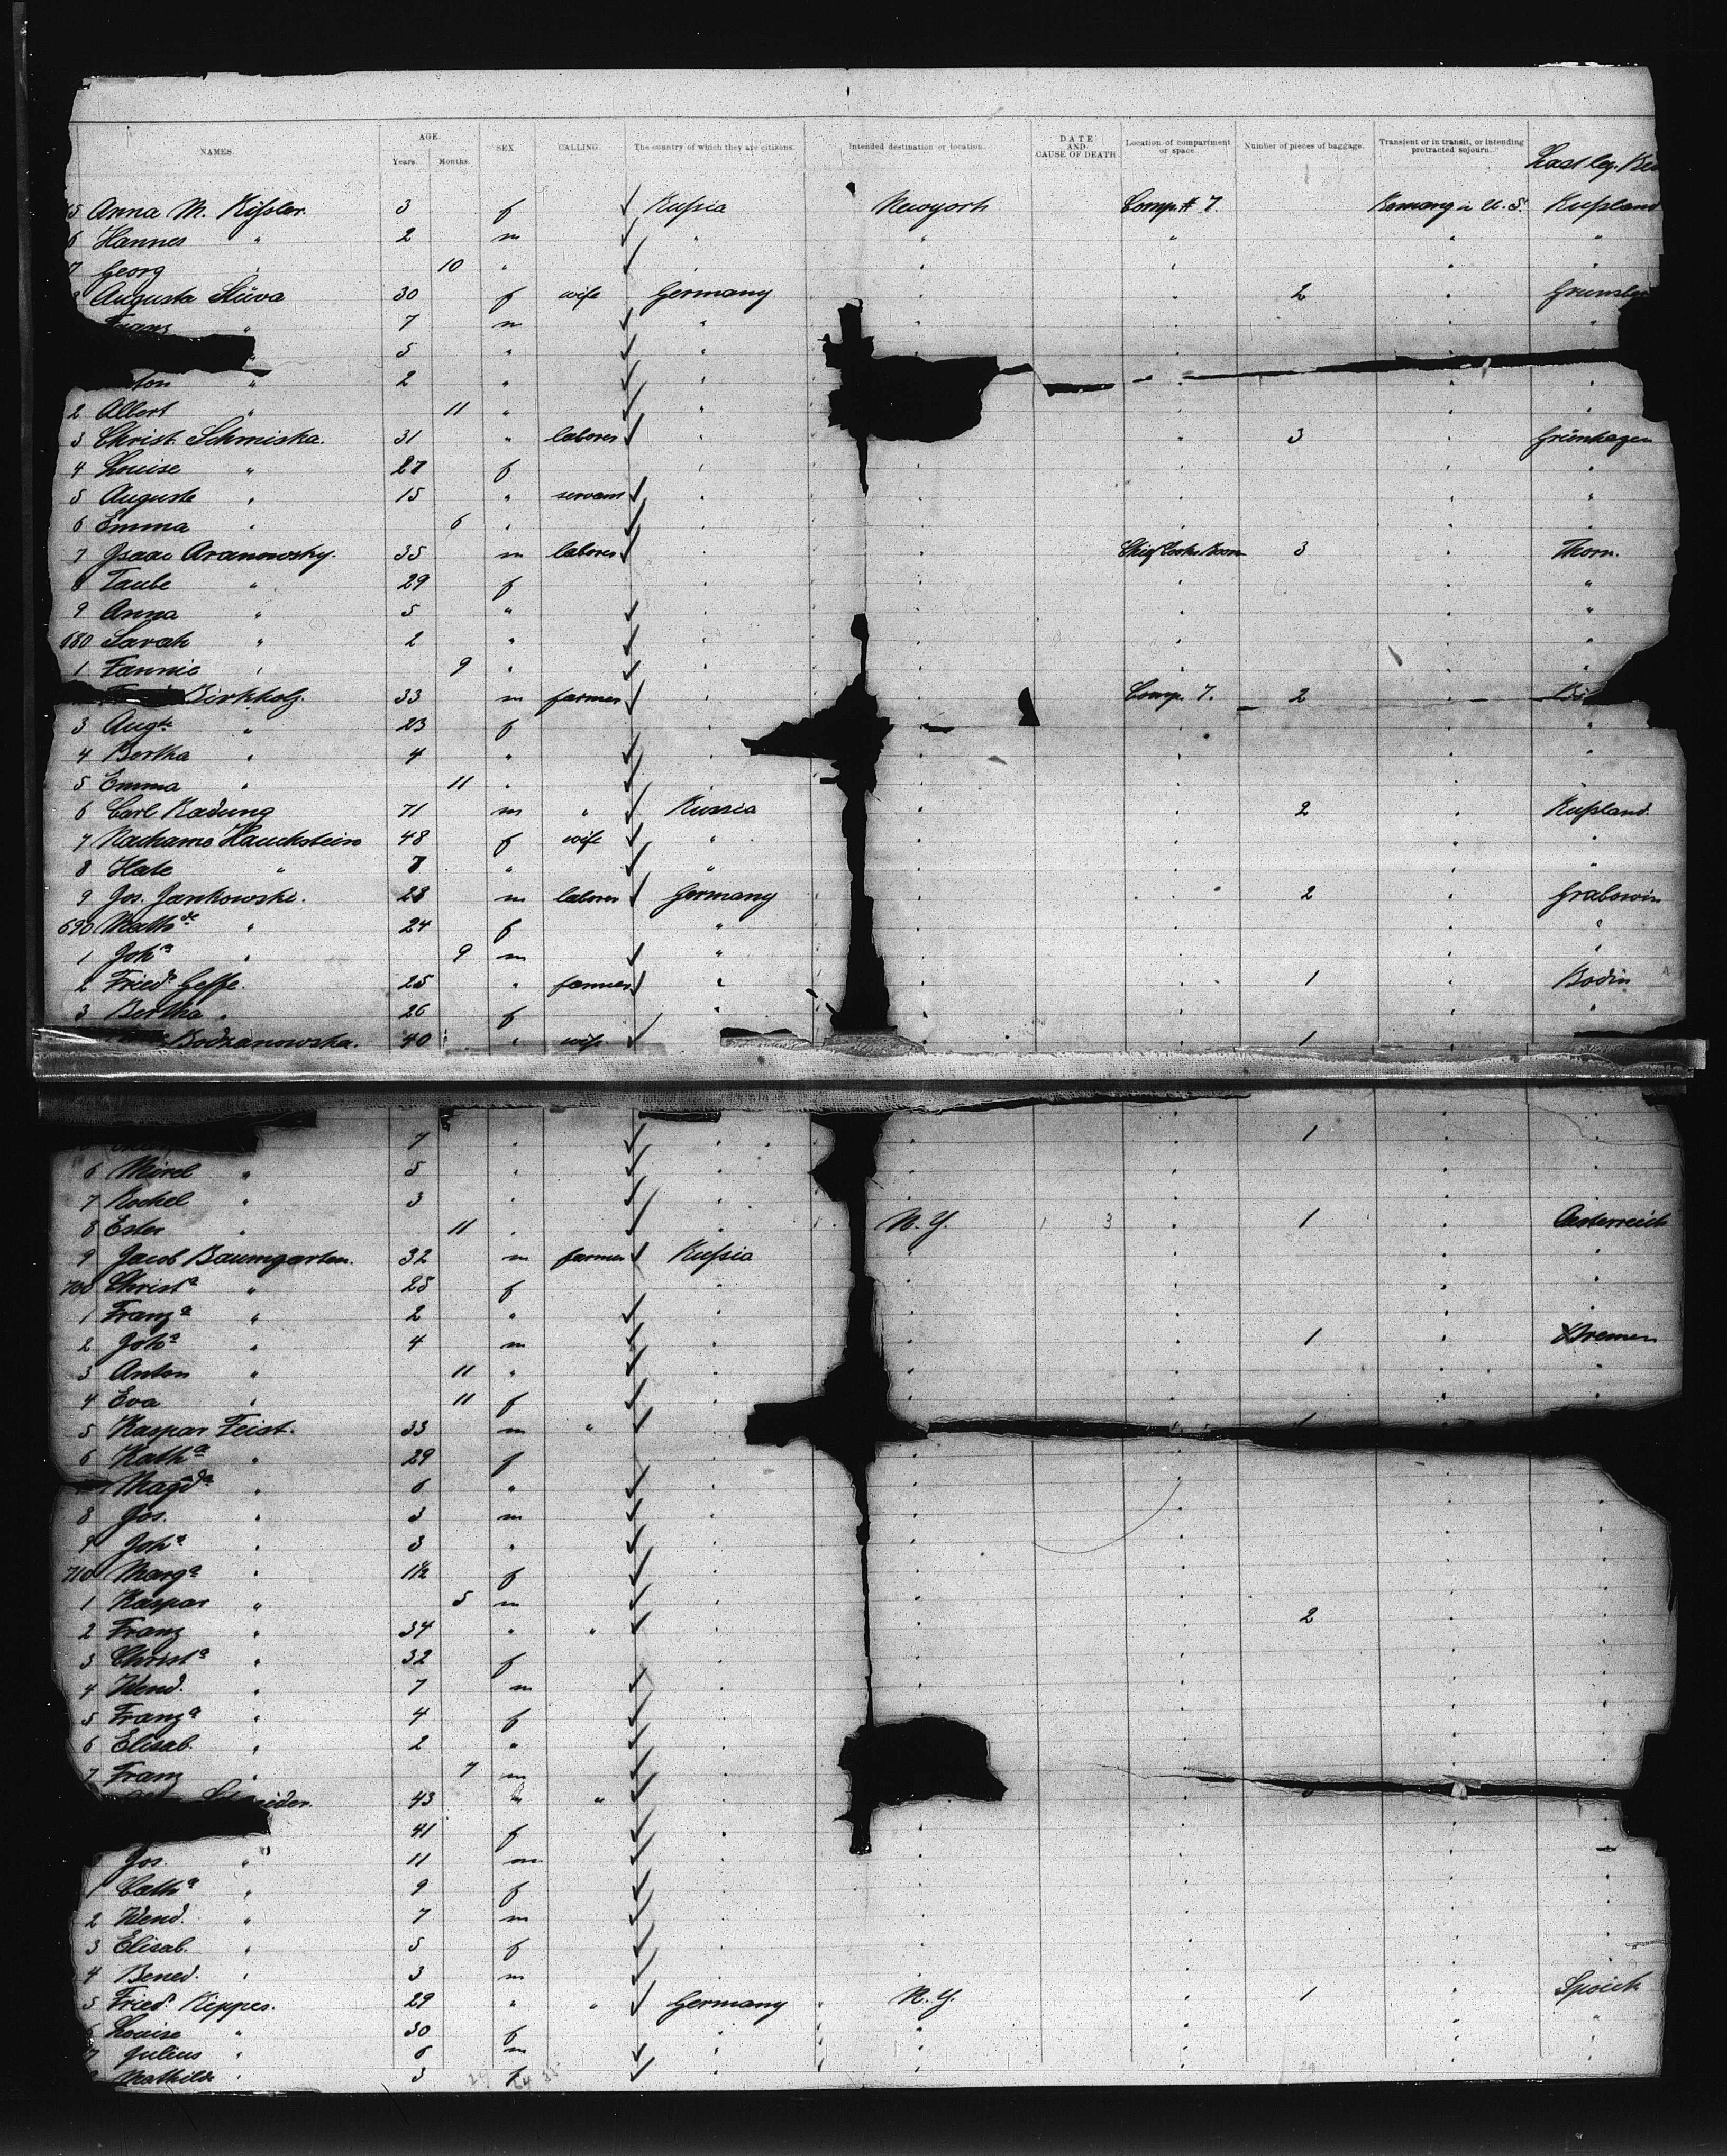 NAMES. AGE. Years. Months. SEX CALLING. The country of which they are citizens. Intended destination or location. DATE AND CAUSE OF DEATH Location of compartment or space. Number of pieces of baggage. Transient or in transit, or intending protracted sojourn.
5 Anna M. Kißler. 3 f ✓ Rußia Newyork Comp. # 7. U. S. Rußland
6 Hannes " 2 m ✓ " " " " "
7 Georg " 10 " ✓ " " " " "
Augusta Stüva 30 f wife Germany " " 2 "
Franz " 7 m ✓ " " " " "
" 5 " ✓ " " "
" 2 " ✓ " " " "
2 Albert " 11 " ✓ " " " "
3 Christ. Schmiska. 31 " laborer ✓ " " 3 " Grünhagen
4 Louise " 27 f " " " " "
5 Auguste " 15 " servant ✓ " " " " "
6 Emma " 6 " ✓ " " " " "
7 Isaac Aranowsky. 35 m laborer ✓ " " Chief Cooks Room 3 " Thorn.
8 Taube " 29 f " " " " "
9 Anna " 5 " ✓ " " " " "
680 Sarah " 2 " ✓ " " " " "
1 Fannie " 9 " ✓ " " " " "
Birkholz. 33 m farmer ✓ " " Comp. 7. 2 "
3 Augte " 23 f " " " " "
4 Bertha " 4 " ✓ " " " " "
5 Emma " 11 " ✓ " " " " "
6 Carl Radung 71 m " ✓ Russia " " 2 " Rußland.
7 Nachame Hauckstein 48 f wife ✓ " " " " "
8 Hate " 7 " ✓ " " " " "
9 Jos. Jankowski. 28 m laborer ✓ Germany " " 2 " Grabowin
690 Mathde " 24 f " " " " "
1 Joha " 9 m ✓ " " " " "
2 Friedr. Geffe. 25 " farmer ✓ " " " 1 " Bodin
3 Bertha " 26 f " " " " "
Bodzanowska. 40 " wife ✓ " " 1 "
7 " ✓ " " " 1 " "
6 Mirel " 5 " ✓ " " " " "
7 Rochel " 3 " ✓ " " " " "
8 Ester " 11 " ✓ " N. Y. " 1 " Oesterreich
9 Jacob Baumgarten. 32 m farmer ✓ Rußia " " " "
700 Christa " 25 f " " " " "
1 Franza " 2 " ✓ " " " " "
2 Joha " 4 m ✓ " " " 1 " Bremen
3 Anton " 11 " ✓ " " " " "
4 Eva " 11 f ✓ " " " " "
5 Kaspar Feist. 33 m " ✓ " 1
6 Katha " 29 f " " " "
Magda " 6 " ✓ " " " " "
8 Jos. " 3 m ✓ " " " " "
9 Joha " 3 " ✓ " " " " "
710 Marga " 1½ f ✓ " " " " "
1 Kaspar " 5 m ✓ " " " " "
2 Franz " 34 " " ✓ " " " 2 " "
3 Christa " 32 f " " " " "
4 Wend. " 7 m ✓ " " " " "
5 Franza " 4 f ✓ " " " " "
6 Elisab. " 2 " ✓ " " " "
7 Franz " 7 m ✓ " " "
43 m " ✓ " " "
41 f ✓ " " " " "
Jos. " 11 m ✓ " " " "
1 Catha " 9 f ✓ " " " " "
2 Wend. " 7 m ✓ " " " " "
3 Elisab. " 5 f ✓ " " " " "
4 Bened. " 3 m ✓ " " " " "
5 Friedr. Kippes. 29 " " ✓ Germany N. Y. " 1 " Spöick
6 Louise " 30 f " " " " "
7 Julius " 6 m ✓ " " " " "
Mathilde " 3 f ✓ " " " " "